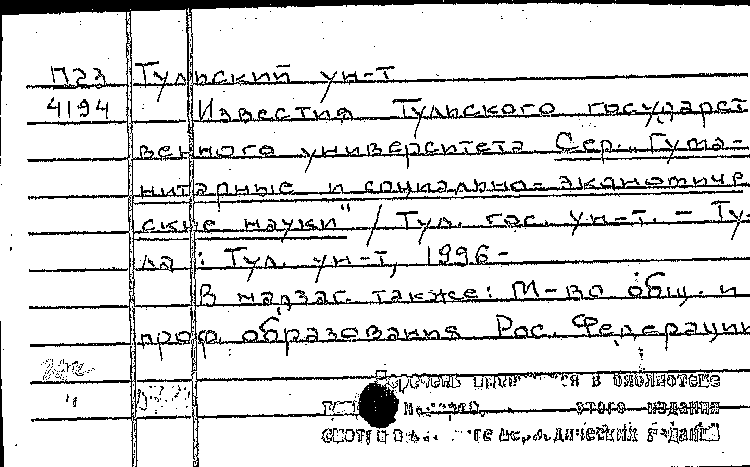 П23 Тульский ун-т
4194 Известия Тульского государст
венного университета Сер. "Гума-
нитарные и социально-экономиче
ские науки" / Тул. гос. ун-т. - Ту-
ла : Тул. ун-т, 1996-
В надзаг. также: М-во общ. и
проф. образования Рос. Федерации
Перечень в библиотеке
этого издания